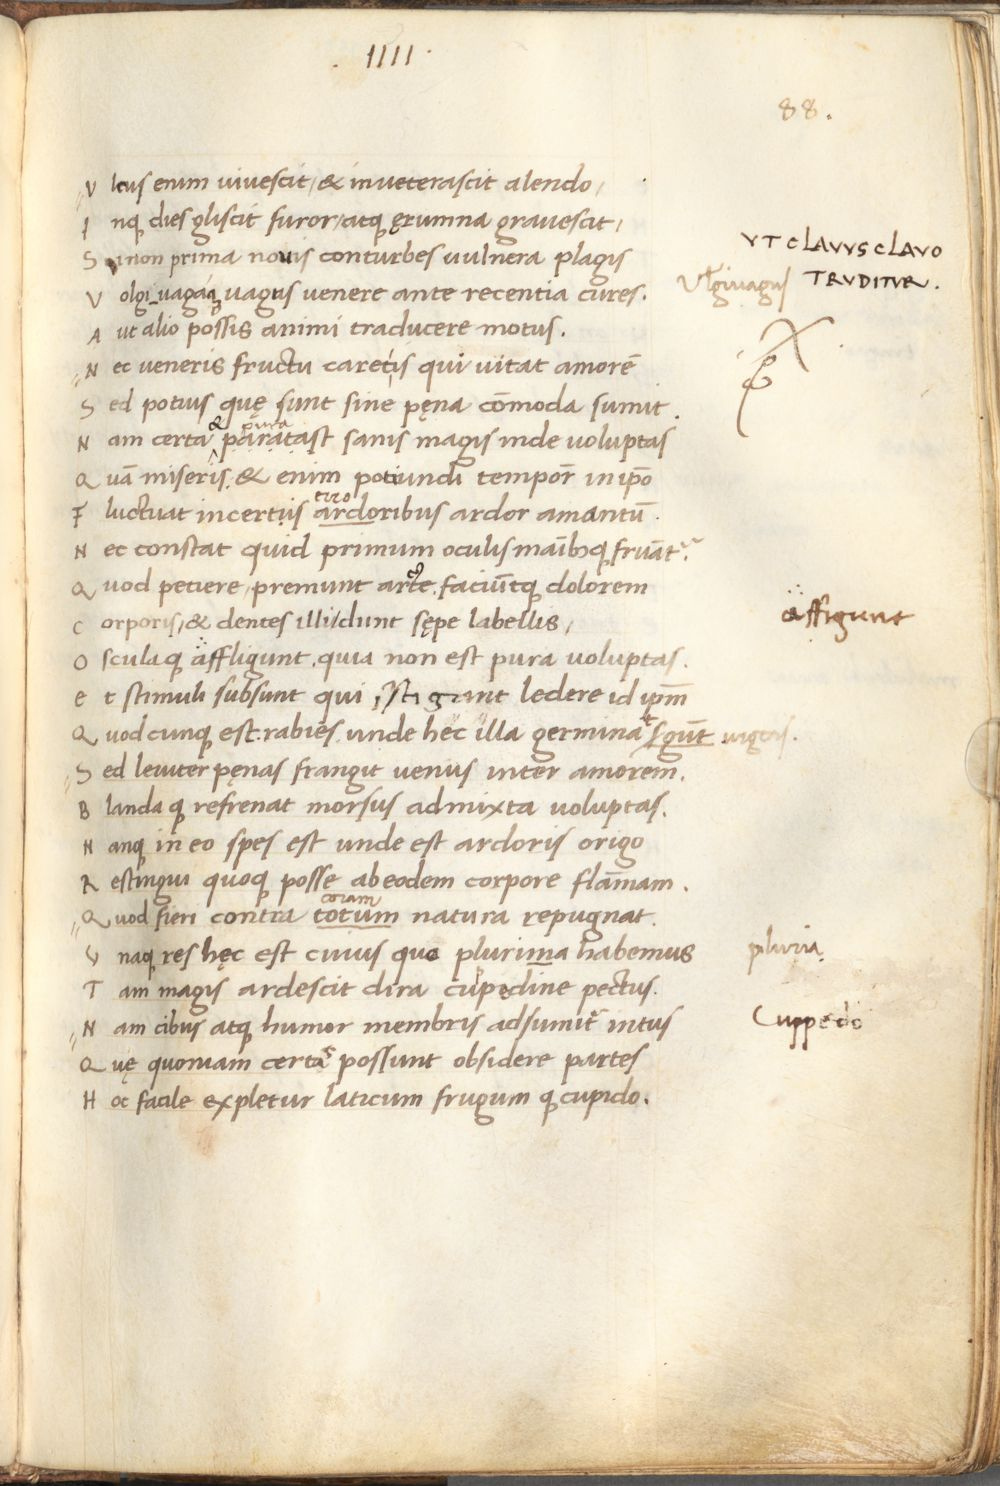 . IIII .
88.
V lcus enim vivescit / & inveterascit alendo /
I nq; dies gliscit furor / atq; ęrumna gravescit /
S i non prima novis conturbes vulnera plagis
VT CLAVVS CLAVO
TRVDITVR .
V olgi_vagaq; vagus venere ante recentia cures .
Vulgivagus
A ut alio possis animi traducere motus .
N ec veneris fructu caret is qui vitat amorē
S ed potius quę sunt sine pęna cōmoda sumit .
& pura
N am certa paratast sanis magis inde voluptas
Q uā miseris . & enim potiundi tempor̄ in ip̄o
erro
F luctuat incertis ardoribus ardor amantū .
N ec constat quid primum oculis maībq; fruāt .
Q uod petiere / premunt arte . faciūtq; dolorem
affigunt
C orporis / & dentes illidunt sępe labellis /
O sculaq; affligunt . quia non est pura voluptas .
e t stimuli subsunt qui istigant ledere id ip̄m
Q uodcunq; est . rabies unde hęc illa germina sgūt
S ed leviter pęnas frangit venus inter amorem .
B landaq; refrenat morsus admixta voluptas .
N anq; in eo spes est unde est ardoris origo
R estingui quoq; posse ab eodem corpore flāmam .
coram
Q uod fieri contra totum natura repugnat .
V naq; res hęc est cuius quo plurima habemus
pluria
T am magis ardescit dira cupedine pectus .
N am cibus atq; humor membris adsumit intus
Cuppedo
Q uę quoniam certas possunt obsidere partes
H oc facile expletur laticum frugum q; cupido .